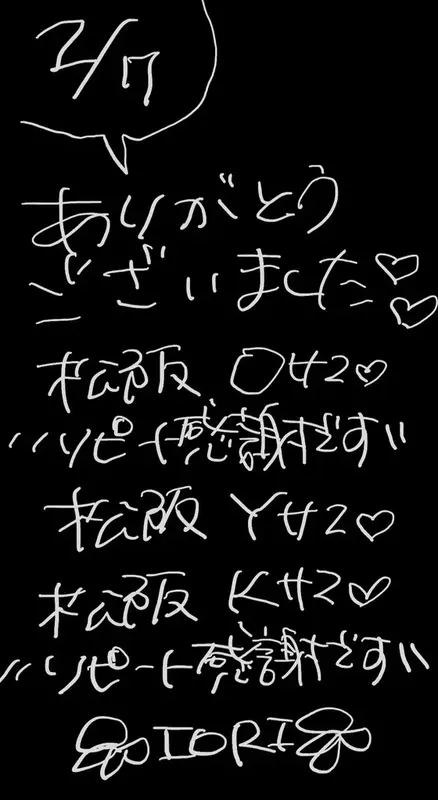 2/17
ありがとう
ございました♡♡
松阪 Oサマ♡
"リピート感謝です"
松阪 Yサマ♡
松阪 Kサマ♡
"リピート感謝です"
IORI